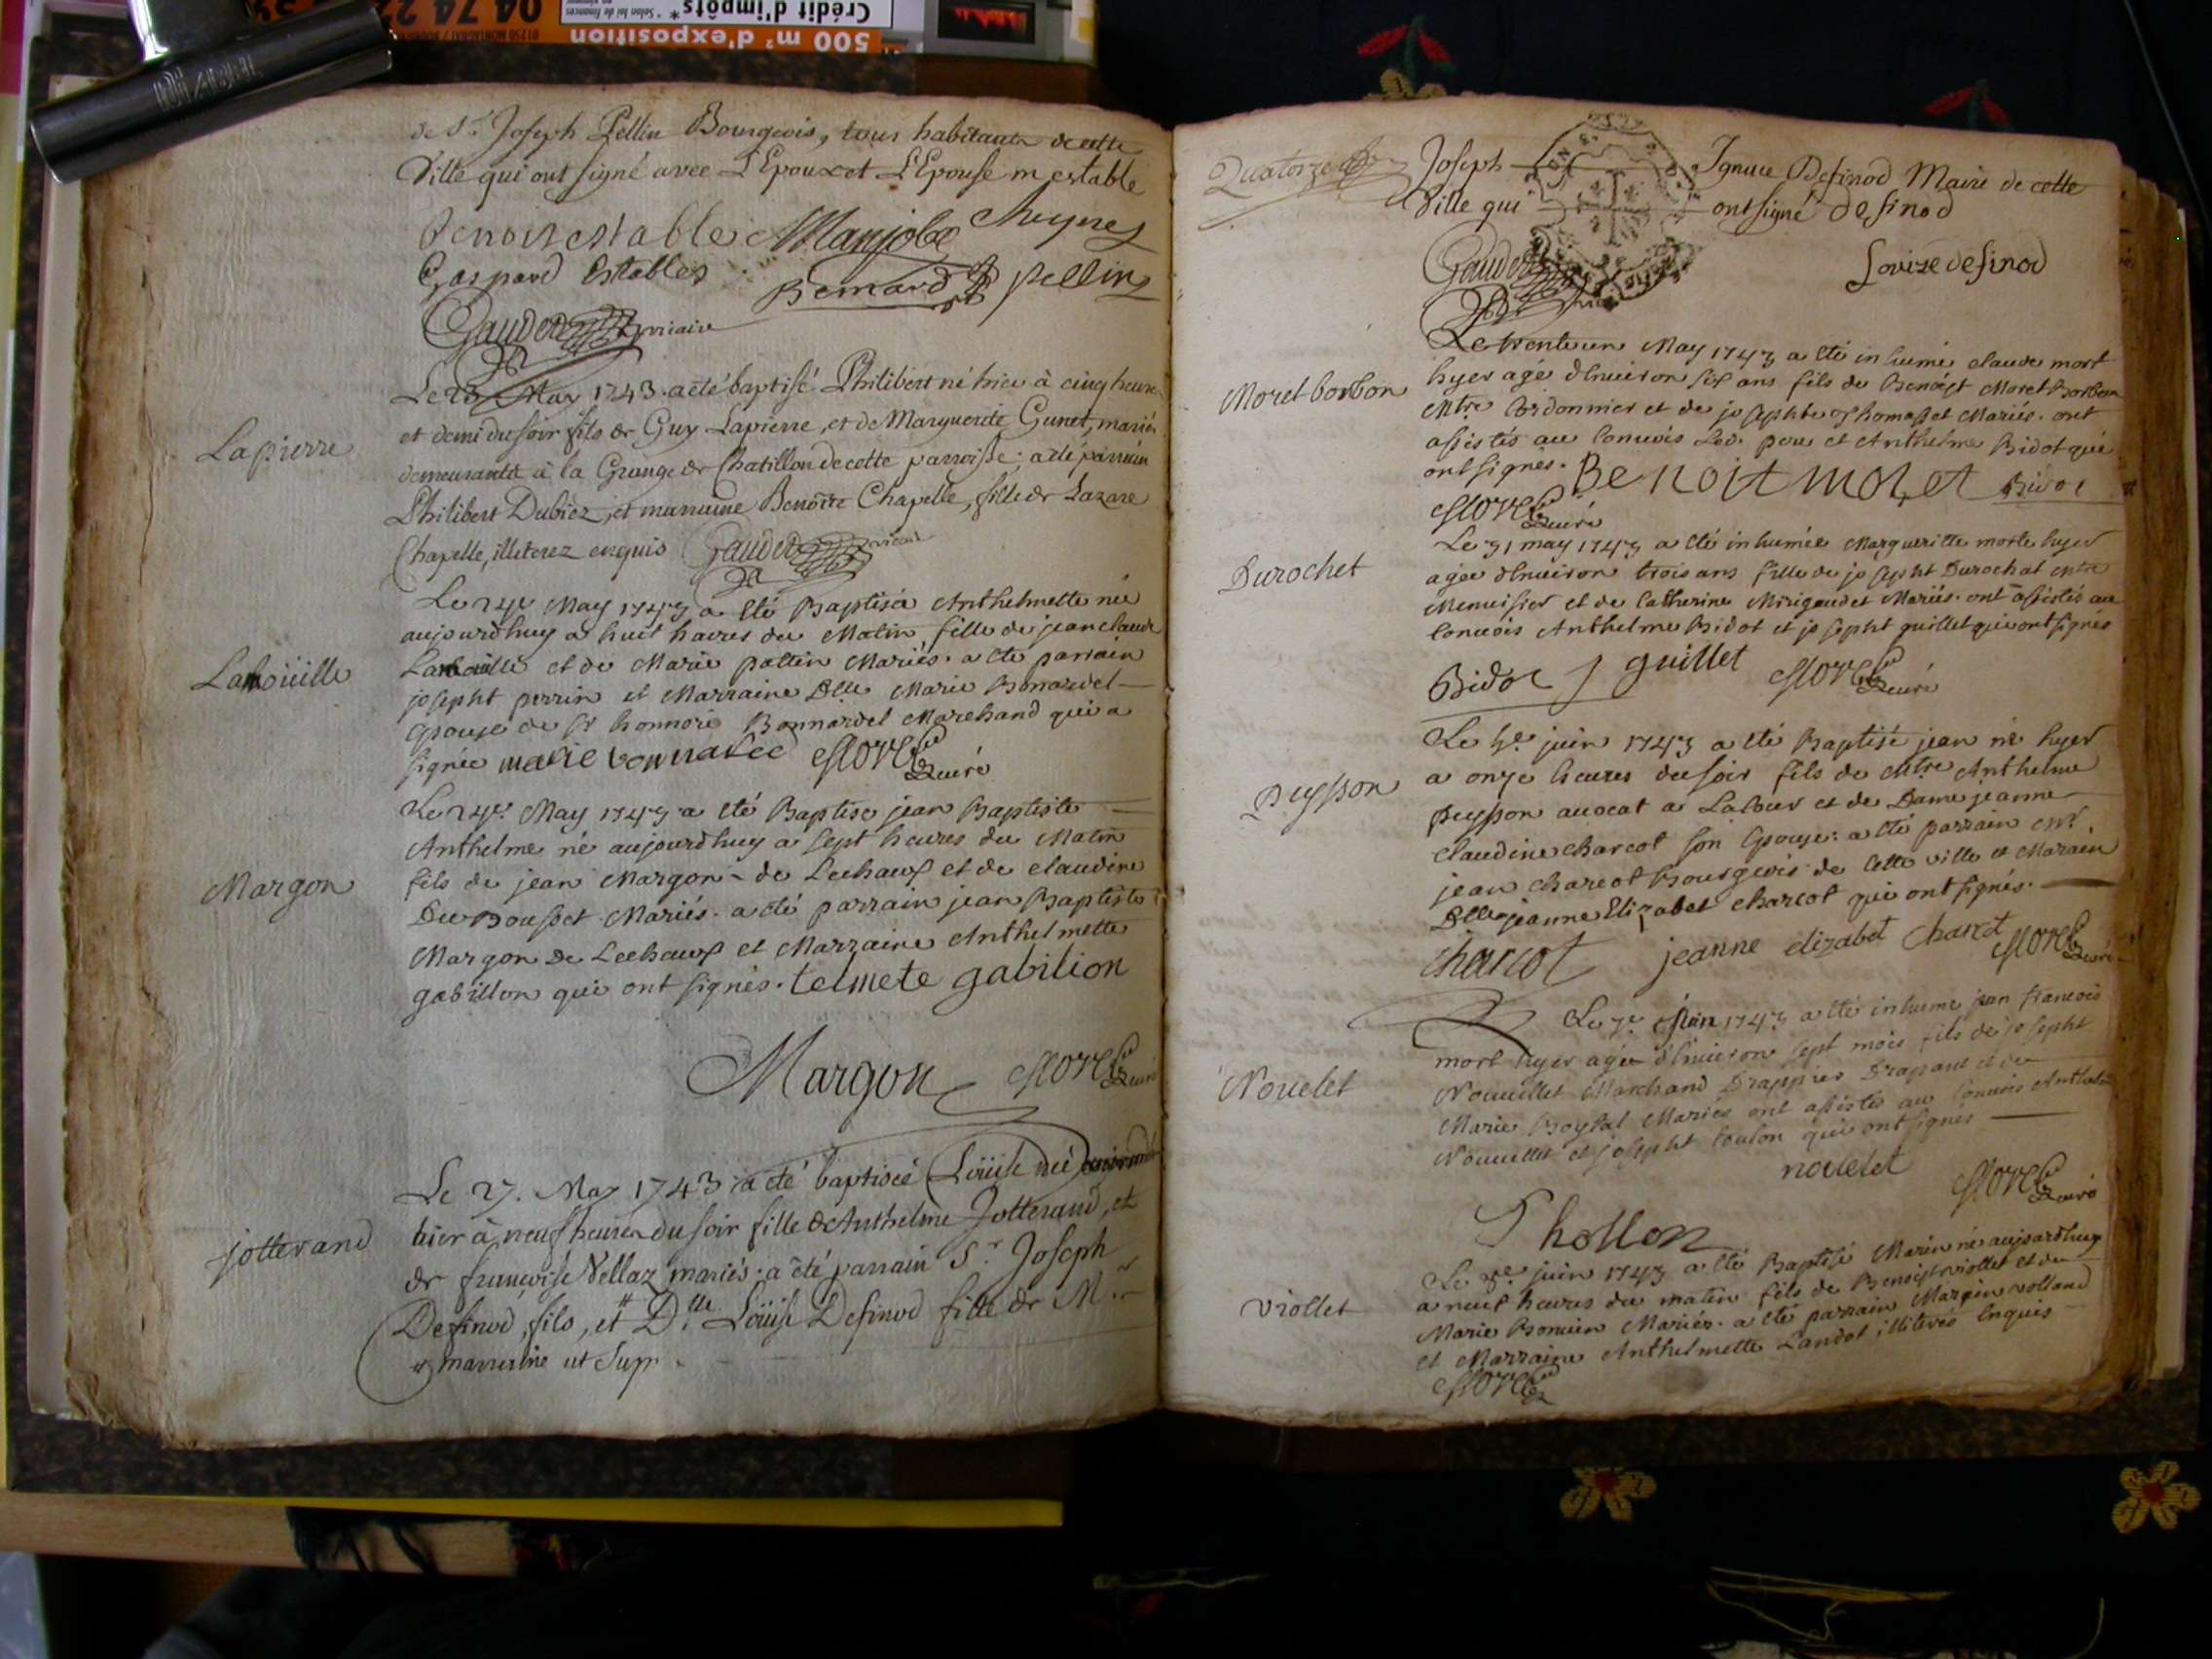 de Sr. Joseph Pellin Bourgeois, tous habitants de cette
Ville qui ont signé avec L'Epoux et L'Epouse m estable
Benoit estable Manjobe Cheynes
Gaspard Estables
Bernard pellin
vicaire
Lapierre
Le 23 May 1743. a eté baptisé Philibert né hier à cinq heures
et demi du soir fils de Guy Lapierre, et de Marguerite Gunet, mariés
demeurants à la Grange de Chatillon de cette parroisse; a eté parrain
Philibert Dubiez, et marraine Benoîte Chapelle, fille de Lazare
Chapelle, illeterez enquis
vicaire
Le 24e May 1743 a Eté Baptisée Anthelmette née
aujourdhuy a huit heures du Matin, fille de jean claude
et de Marie pattin Mariés. a Eté parrain
josepht perrin et Marraine Dlle Marie Bonnardel
Epouse de Sr honnoré Bonnardel Marchand qui a
signée
curé
Margon
Le 24e May 1743 a Eté Baptisé jean Baptiste
Anthelme né aujourdhuy a sept heures du Matin
fils de jean Margon de Lechaux et de claudine
Du Bousset Mariés. a eté parrain jean Baptiste
Margon de Lechaux et Marraine Anthelmette
gabillon qui ont signés. telmete gabilion
Margon
curé
jotterand
Le 27. May 1743 a eté baptisée Loüise née
hier à neuf heures du soir fille de Anthelme Jotterand, et
de françoise Vellaz mariés; a été parrain Sr. Joseph
Desinod, fils, et # Dlle. Loüise Desinod fille de Mr.
# marraine ut Supr.
Quatorze
Joseph Ignace Desinod Maire de cette
Ville qui ont signé desinod
Louize desinod
Moret borbon
Le trente un May 1743 a Eté inhumé claude mort
hyer agé d'Environ six ans fils de Benoist Moret Borbon
Mtre Cordonnier et de josephte Thomasset Mariés. ont
assistés au Convois Led. pere et Anthelme Bidot qui
ont signés. Benoit moret Bidot
curé
Durochet
Le 31 may 1743 a Eté inhumée Margueritte morte hyer
agée d'Environ trois ans fille de josepht Durochat Mtre
Menuisier et de Catherine Mirigaudet Mariés. ont assistés au
Convois Anthelme Bidot et josepht guillet qui ont signés
Bidot J guillet
curé
Puysson
Le 5e juin 1743 a Eté Baptisé jean né hyer
a onze heures du soir fils de Mtre Anthelme
puysson avocat a La Cour et de Dame jeanne
Claudine charcot son Epouse: a Eté parrain Mr.
jean charcot Bourgeois de Cette ville et Maraine
Dlle jeanne Elizabet charcot qui ont signés.
charcot jeanne elizabet charcot
curé
Nouelet
Le 7e juin 1743 a Eté inhumé jean francois
mort hyer agé d'Environ sept mois fils de josepht
Nouuellet Marchand Drappier Drapant et de
Marie Boysat Mariés ont assistés au Convois Anthelme
Nouuellet et josepht toulon qui ont signés
nouelet
curé
Thollon
viollet
juin 1743 a Eté Baptisé Marin né aujourdhuy
a neuf heures du matin fils de Benoist viollet et de
Marie Bonnien Mariés. a Eté parrain Marin volland
et Marraine Anthelmette Landot illiterés Enquis